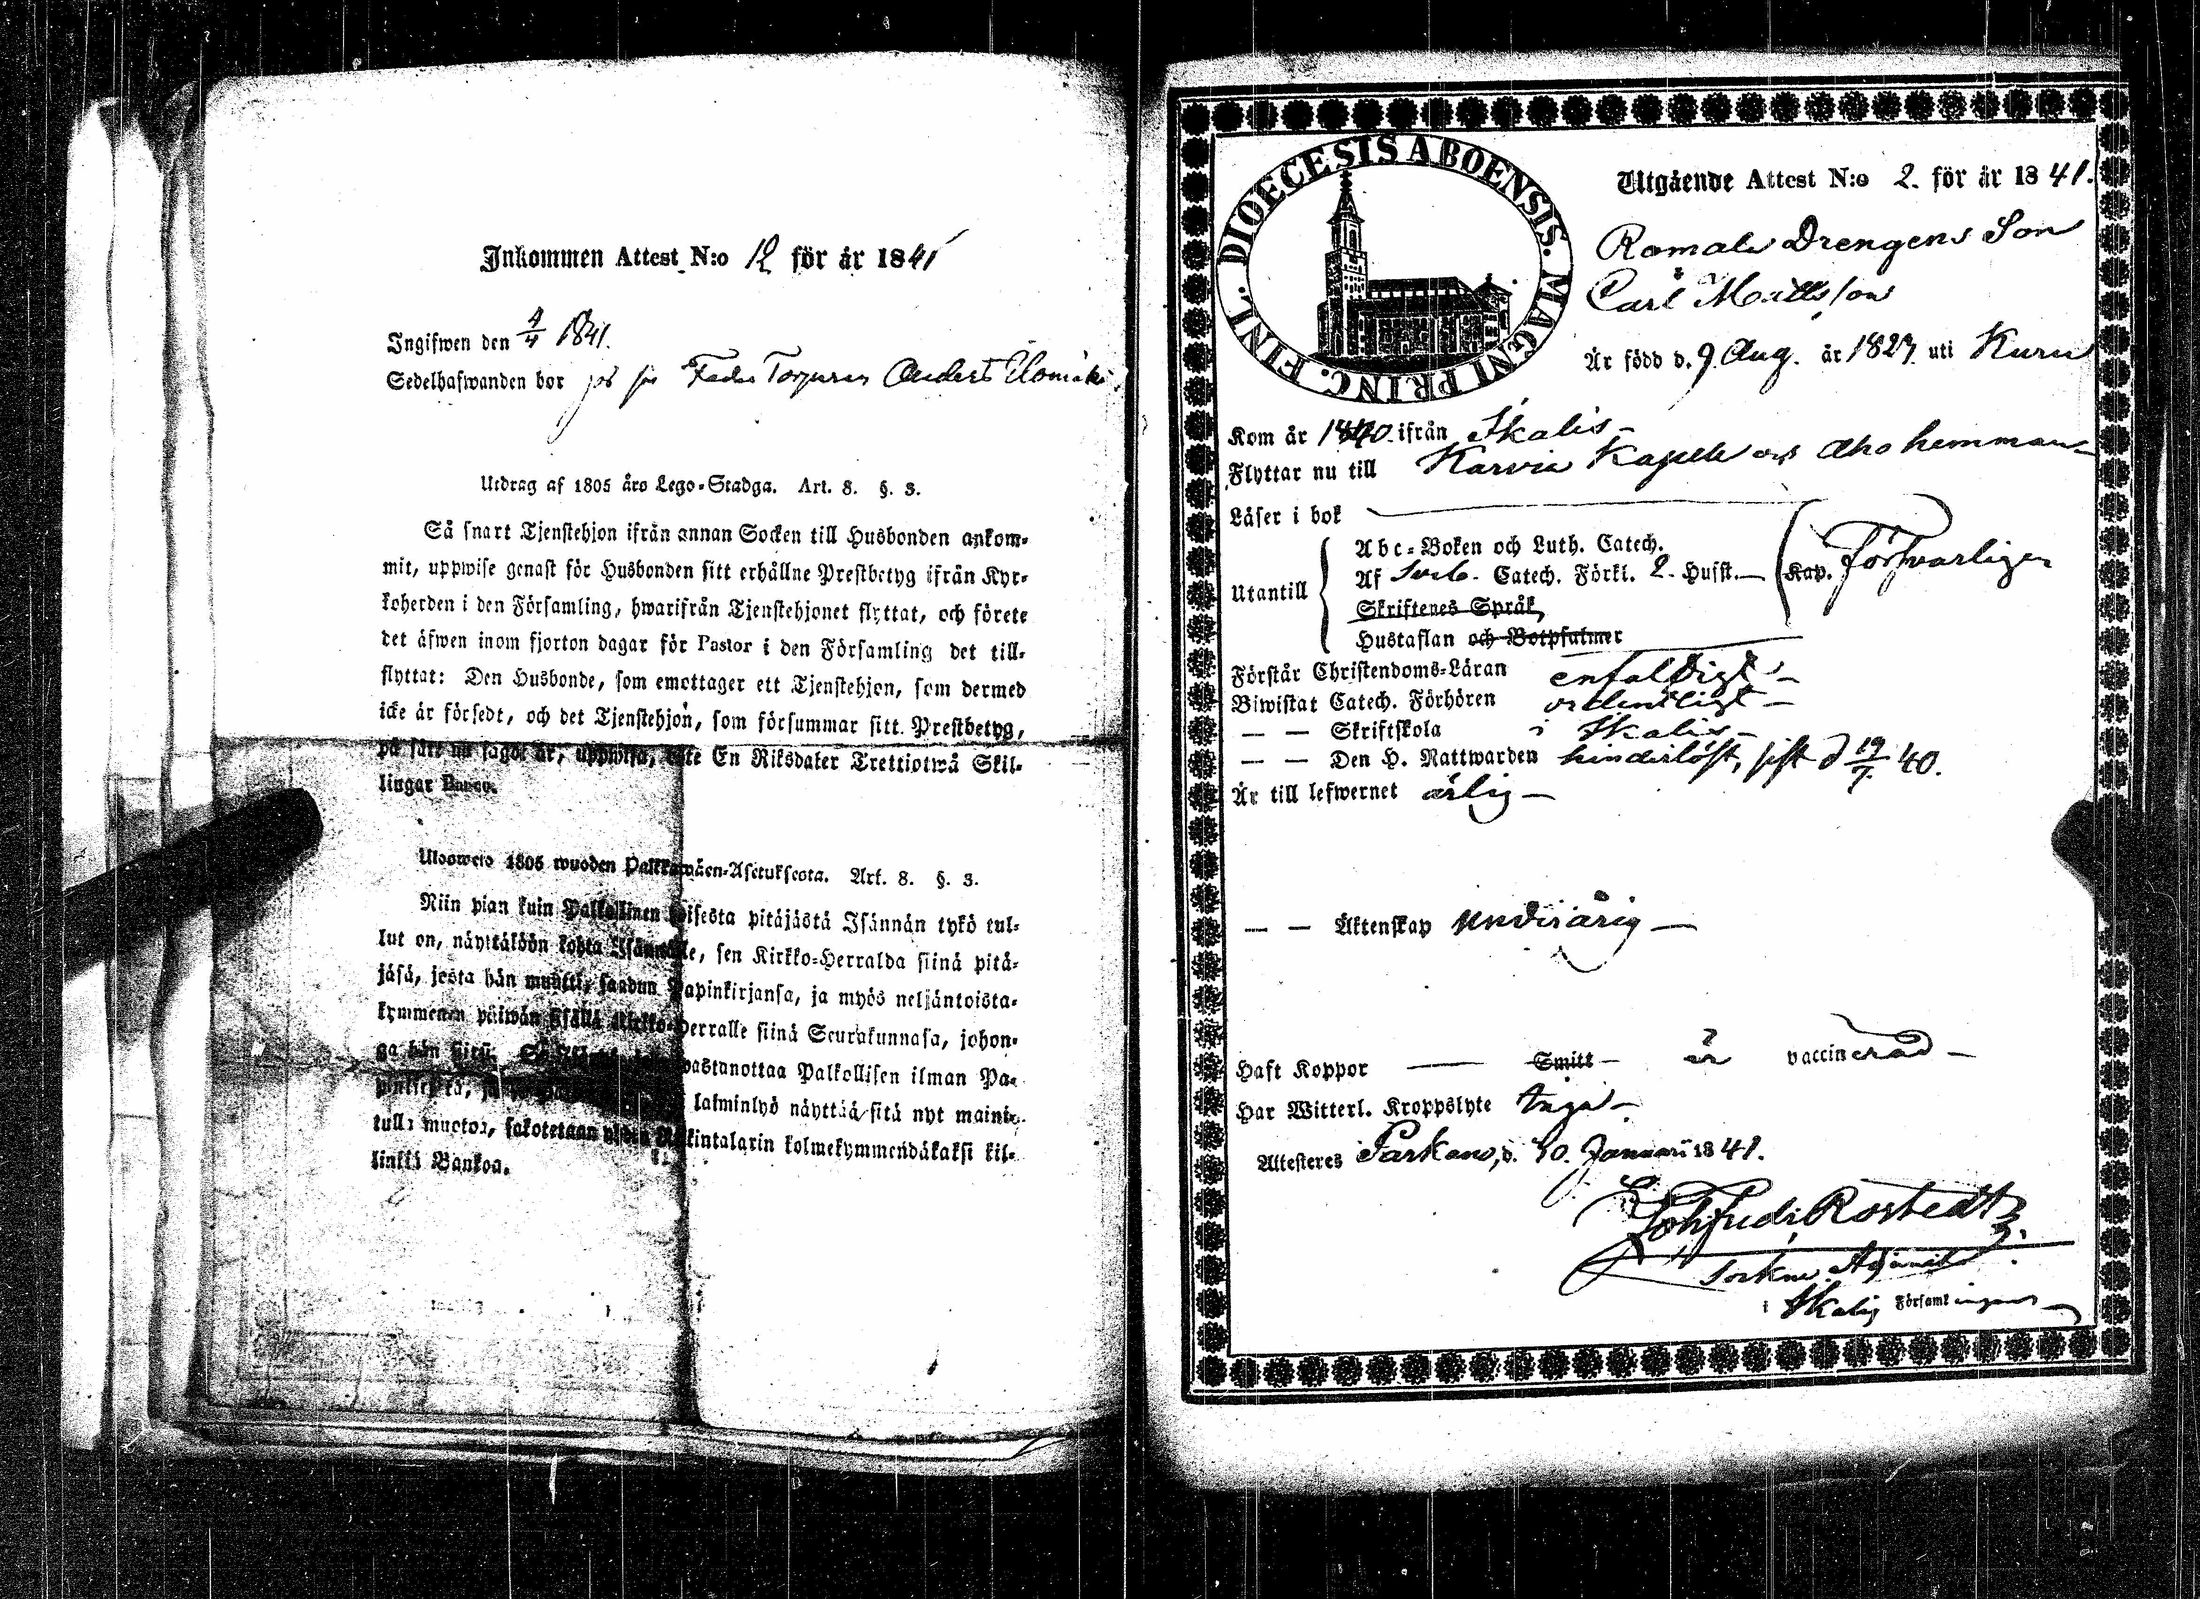 Inkommen Attest N:o 12 för år 1841
Ingifwen den 4/4 1841.
Sedelhafwanden bor Torparen Anders
Utdrag af 1805 års Lego-Stadga. Art. 8. §. 3.
Så snart Tjenstehjon ifrån annan Socken till Husbonden ankom-
mit, uppwise genast för Husbonden sitt erhållne Prestbetyg ifrån Kyr-
koherden i den Församling, hwarifrån Tjenstehjonet flyttat, och förete
det äfwen inom fjorton dagar för Pastor i den Församling det till-
flyttat: Den Husbonde, som emottager ett Tjenstehjon, som dermed
icke är försedt, och det Tjenstehjon, som försummar sitt Prestbetyg,
på sätt nu sagdt är, uppwisa, böte En Riksdaler Trettiotwå Skil-
lingar Banco.
Ulosweto 1805 wuoden Palkkawäen-Asetuksesta. Art. 8. §. 3.
Niin pian kuin Palkollinen toisesta pitäjästä Isännän tykö tul-
lut on, näyttäköön kohta Isännälle, sen Kirkko-Herralda siinä pitä-
jäsä, josta hän muutti, saadun Papinkirjansa, ja myös neljäntoista-
kymmenen päiwän sisällä Kirkko-Herralle siinä Seurakunnasa, johon-
ga hän siirti. wastanottaa Palkollisen ilman Pa-
pinkirjata, laiminlyö näyttää sitä nyt maini-
tulla muotoa, sakotetaan yhden Riikintalarin kolmekymmendäkaksi kil-
linkiä Bankoa.
DIOECESIS ABOENSIS. MAGNI PRINC. FINL.
Utgående Attest N:o 2. för år 1841.
Drengens Son
Carl Mattsson
Är född d. 9. Aug. år 1827. uti Kuru
Kom år 1840 ifrån Ikalis
Flyttar nu till Karvia Kapell och Aho hemman
Läser i bok
Abc-Boken och Luth. Catech.
Utantill Af Sveb. Catech. Förkl. 2. Husst. Kap. försvarligen
Skriftenes Språk,
Hustaflan och Botpsalmer
Förstår Christendoms-Läran enfaldigt
Biwistat Catech. Förhören ordentligt
— — Skriftskola i Ikalis
— — Den H. Nattwarden hinderlöst, sist d 19/7 40.
Är till lefwernet ärlig
— — Äktenskap underårig
Haft Koppor Smitt är vaccinerad
Har Witterl. Kroppslyte inga
Attesteres Parkano, d. 30. Januari 1841.
Gottfried Rostedt
Sockne Adjunct
i Ikalis Församlingens